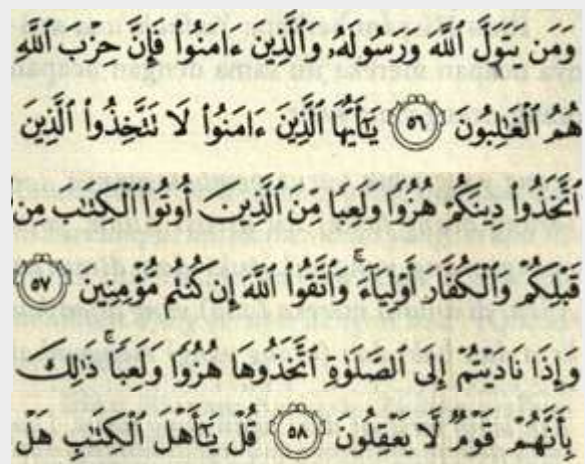 وَمَن يَتَوَلَّ ٱللَّهَ وَرَسُولَهُۥ وَٱلَّذِينَ ءَامَنُوا۟ فَإِنَّ حِزْبَ ٱللَّهِ
هُمُ ٱلْغَـٰلِبُونَ ٥٦ يَـٰٓأَيُّهَا ٱلَّذِينَ ءَامَنُوا۟ لَا تَتَّخِذُوا۟ ٱلَّذِينَ
ٱتَّخَذُوا۟ دِينَكُمْ هُزُوًا وَلَعِبًا مِّنَ ٱلَّذِينَ أُوتُوا۟ ٱلْكِتَـٰبَ مِن
قَبْلِكُمْ وَٱلْكُفَّارَ أَوْلِيَآءَ ۚ وَٱتَّقُوا۟ ٱللَّهَ إِن كُنتُم مُّؤْمِنِينَ ٥٧
وَإِذَا نَادَيْتُمْ إِلَى ٱلصَّلَوٰةِ ٱتَّخَذُوهَا هُزُوًا وَلَعِبًا ۚ ذَٰلِكَ
بِأَنَّهُمْ قَوْمٌ لَّا يَعْقِلُونَ ٥٨ قُلْ يَـٰٓأَهْلَ ٱلْكِتَـٰبِ هَلْ